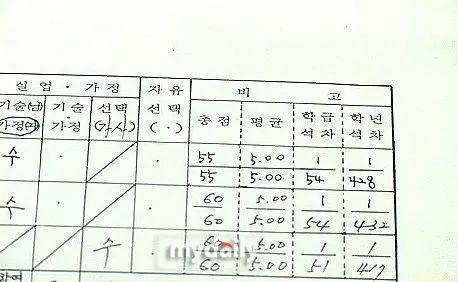 실업 · 가정 자유 비 고
기술(남) 기술 선택 선택 총점 평균 학급 학년
가정(여) ·가정 (가사) (·) 석차 석차
수 · · 55 5.00 1 1
55 5.00 54 428
수 · · 60 5.00 1 1
60 5.00 54 432
· 수 · 60 5.00 1 1
60 5.00 51 417
mydaily